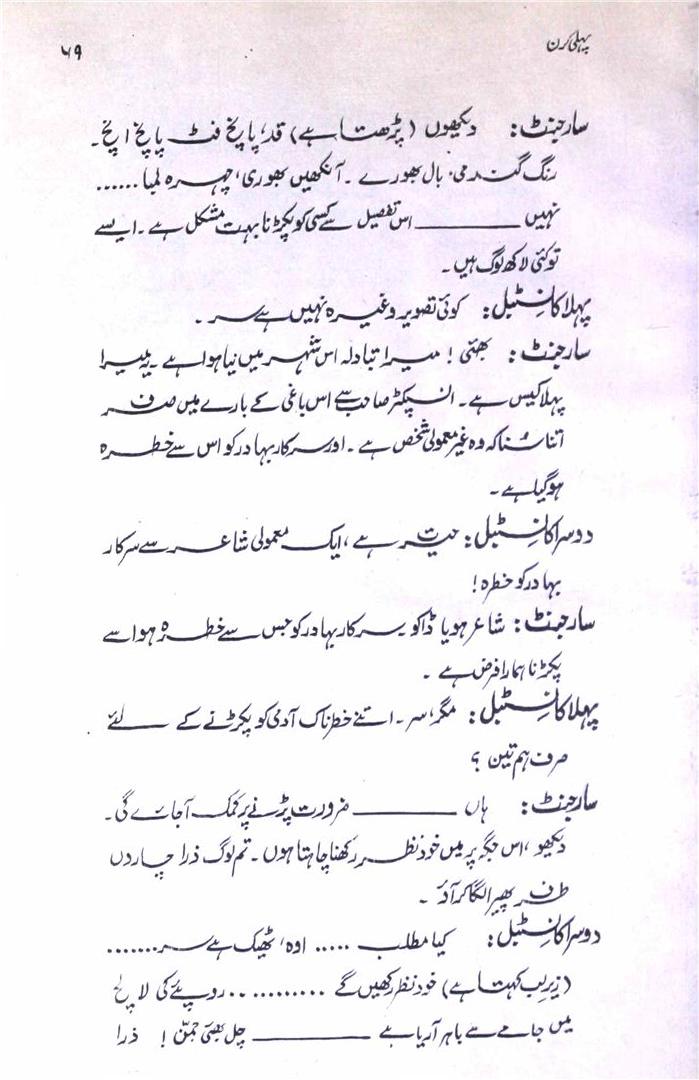 پہلی کرن ۶۹
سارجنٹ: دیکھوں (پڑھتا ہے) قد، پانچ فٹ پانچ انچ۔
رنگ گندمی، بال بھورے۔ آنکھیں بھوری، چہرہ لمبا ......
نہیں ــــــــــــ اس تفصیل سے کسی کو پکڑنا بہت مشکل ہے۔ ایسے
تو کئی لاکھ لوگ ہیں۔
پہلا کانسٹبل: کوئی تصویر وغیرہ نہیں ہے سر۔
سارجنٹ: بھئی! میرا تبادلہ اس شہر میں نیا ہوا ہے۔ یہ میرا
پہلا کیس ہے۔ انسپکٹر صاحب سے اس باغی کے بارے میں صرف
اتنا سُنا کہ وہ غیر معمولی شخص ہے۔ اور سرکار بہادر کو اس سے خطرہ
ہو گیا ہے۔
دوسرا کانسٹبل: حیرت ہے، ایک معمولی شاعر سے سرکار
بہادر کو خطرہ!
سارجنٹ: شاعر ہو یا ڈاکو۔ سرکار بہادر کو جس سے خطرہ ہو اسے
پکڑنا ہمارا فرض ہے۔
پہلا کانسٹبل: مگر، سر۔ اتنے خطرناک آدمی کو پکڑنے کے لئے
صرف ہم تین؟
سارجنٹ: ہاں ــــــــــــ ضرورت پڑنے پر کمک آ جائے گی۔
دیکھو، اس جگہ پر میں خود نظر رکھنا چاہتا ہوں۔ تم لوگ ذرا چاروں
طرف پھیرا لگا کر آؤ۔
دوسرا کانسٹبل: کیا مطلب ..... اوہ، ٹھیک ہے سر.......
(زیرِ لب کہتا ہے) خود نظر رکھیں گے .......... روپئے کی لالچ
میں جامے سے باہر آ رہا ہے ــــــــــــ چل بھئی جمّن! ذرا